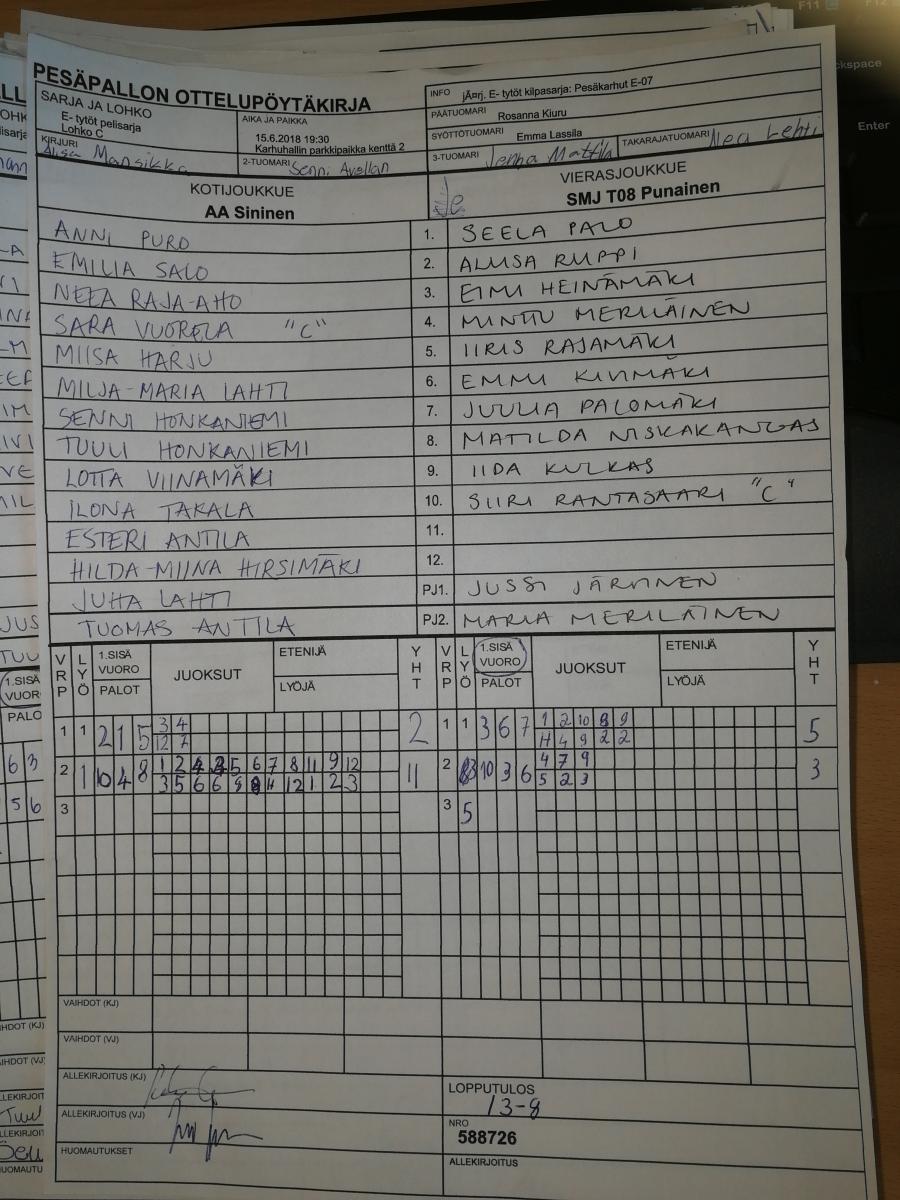 PESÄPALLON OTTELUPÖYTÄKIRJA
SARJA JA LOHKO
E- tytöt pelisarja
Lohko C
KIRJURI
Alisa Mansikka
AIKA JA PAIKKA
15.6.2018 19:30
Karhuhallin parkkipaikka kenttä 2
2-TUOMARI Senni Avellan
INFO jÃ¤rj. E- tytöt kilpasarja: Pesäkarhut E-07
PÄÄTUOMARI Rosanna Kiuru
SYÖTTÖTUOMARI Emma Lassila
3-TUOMARI Jenna Mattila TAKARAJATUOMARI Nea Lehti
KOTIJOUKKUE
AA Sininen
VIERASJOUKKUE
SMJ T08 Punainen
ANNI PURO 1. SEELA PALO
EMILIA SALO 2. ALIISA RUPPI
NEEA RAJA-AHO 3. EIMI HEINÄMÄKI
SARA VUORELA "C" 4. MINTTU MERILÄINEN
MIISA HARJU 5. IIRIS RAJAMÄKI
MILJA-MARIA LAHTI 6. EMMI KIVIMÄKI
SENNI HONKANIEMI 7. JUULIA PALOMÄKI
TUULI HONKANIEMI 8. MATILDA NISKAKANGAS
LOTTA VIINAMÄKI 9. IIDA KULKAS
ILONA TAKALA 10. SIIRI RANTASAARI "C"
ESTERI ANTILA 11.
HILDA-MIINA HIRSIMÄKI 12.
JUHA LAHTI PJ1. JUSSI JÄRVINEN
TUOMAS ANTILA PJ2. MARIA MERILÄINEN
VRP LYÖ 1.SISÄ VUORO PALOT JUOKSUT ETENIJÄ LYÖJÄ YHT VRP LYÖ 1.SISÄ VUORO PALOT JUOKSUT ETENIJÄ LYÖJÄ YHT
1 1 2 1 5 3 4 2 1 1 3 6 7 1 2 10 8 9 5
12 7 4 4 9 2 2
2 1 10 4 8 1 2 4 5 6 7 8 11 9 12 11 2 10 3 6 4 7 9 3
3 5 6 6 9 11 12 1 2 3 5 2 3
3 3 5
VAIHDOT (KJ)
VAIHDOT (VJ)
ALLEKIRJOITUS (KJ)
ALLEKIRJOITUS (VJ)
HUOMAUTUKSET
LOPPUTULOS
13-8
NRO
588726
ALLEKIRJOITUS
Enter